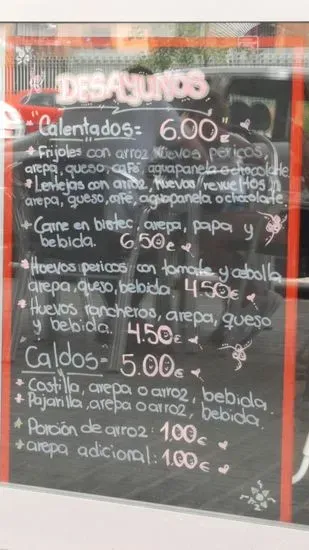 DESAYUNOS
Calentados= 6.00€
• Frijoles con arroz, Huevos pericos,
arepa, queso, café, aguapanela o chocolate
• Lentejas con arroz, huevos revueltos,
arepa, queso, café, aguapanela o chocolate.
• Carne en bistec, arepa, papa y
bebida. 6.50€
• Huevos pericos con tomate y cebolla
arepa, queso, bebida. 4.50€
• Huevos rancheros, arepa, queso
y bebida. 4.50€
Caldos= 5.00€
• Costilla, arepa o arroz, bebida.
• Pajarilla, arepa o arroz, bebida.
• Porción de arroz: 1.00€
• arepa adicional: 1.00€